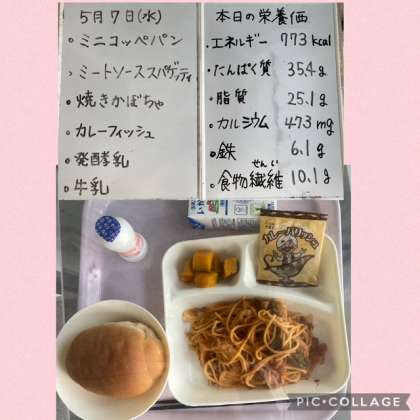 ５月７日(水)
・ミニコッペパン
・ミートソーススパゲッティ
・焼きかぼちゃ
・カレーフィッシュ
・発酵乳
・牛乳
本日の栄養価
・エネルギー 773 kcal
・たんぱく質 35.4 g
・脂質 25.1 g
・カルシウム 473 mg
・鉄 6.1 g
せんい
・食物繊維 10.1 g
カレーパリッシュ
PIC•COLLAGE